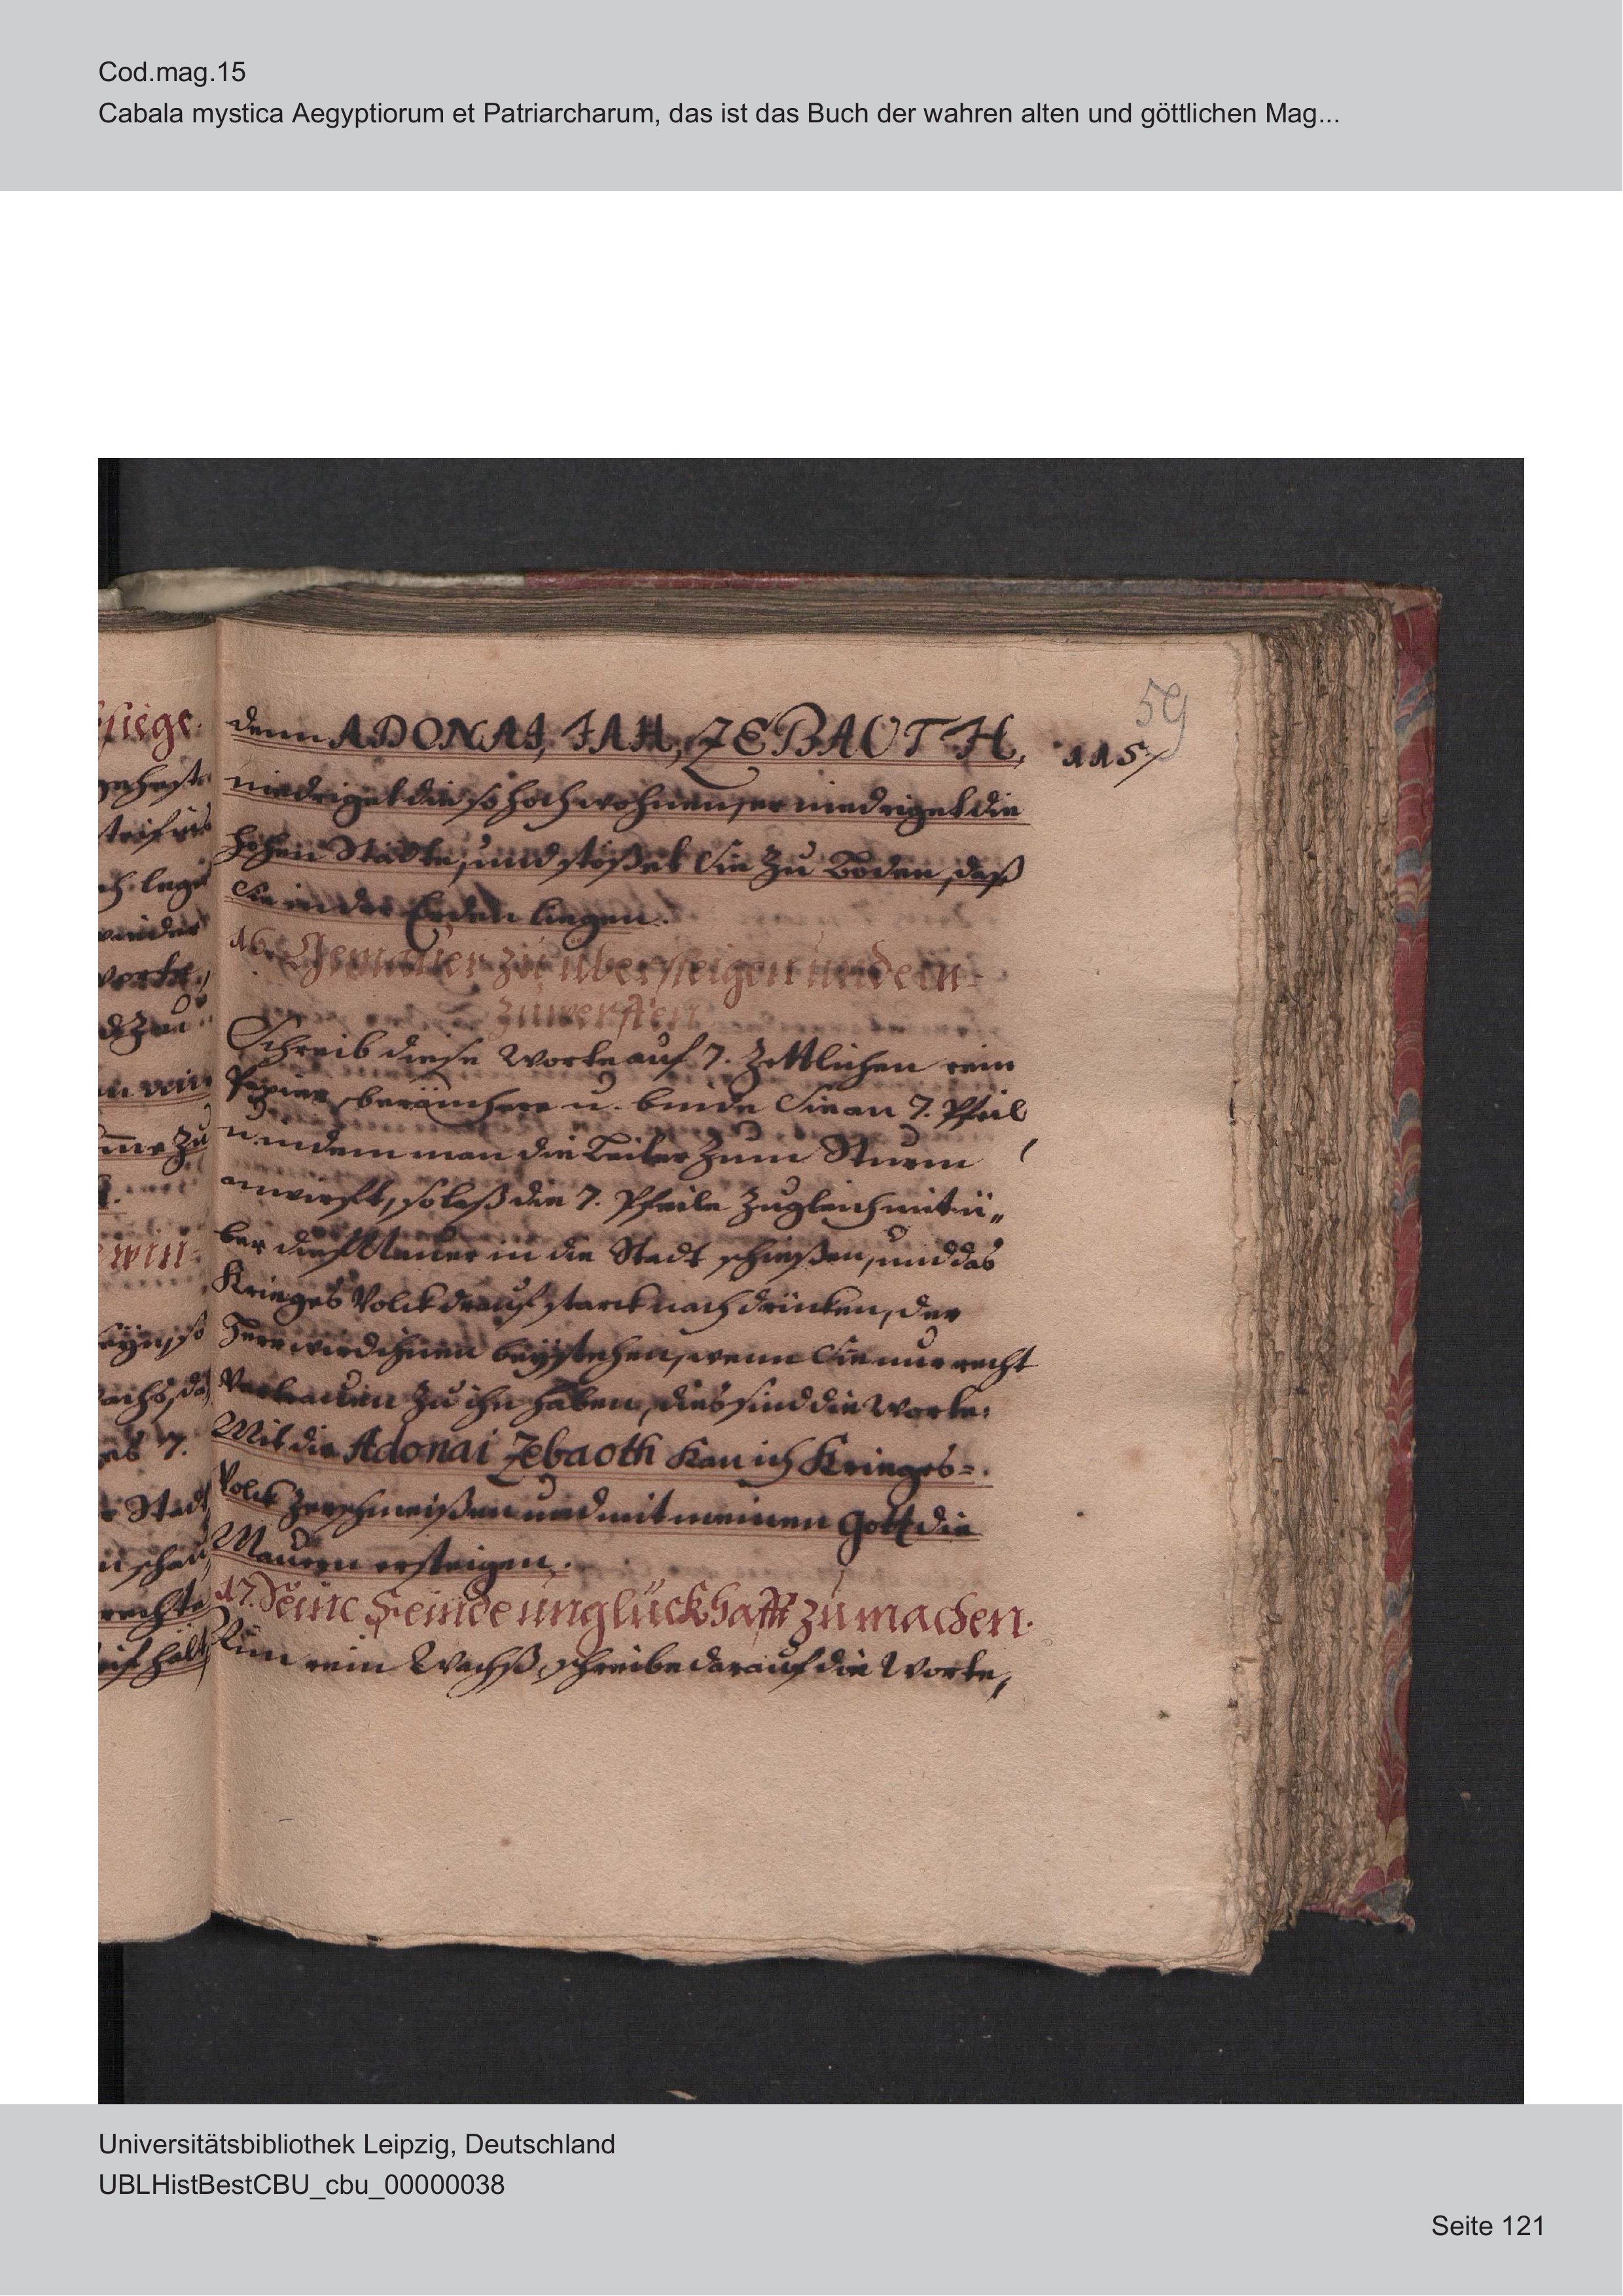 Cod.mag.15
Cabala mystica Aegyptiorum et Patriarcharum, das ist das Buch der wahren alten und göttlichen Mag...
59
115
denn ADONAI, IAH, ZEBAOTH,
niedriget die so hoch wohnen, er niedriget die
hohen Städte, und stößet sie zu Boden, daß
sie in der Erden liegen.
16. Gemäuer zu übersteigen und ein-
zuwerffen
Schreib diese Worte auf 7. Zettlichen rein
Papier, beräuchere u. binde sie an 7. Pfeil
u. indem man die Leiter zum Sturm
anwirfft, so laß die 7. Pfeile zugleich mit ü„
ber die Mauer in die Stadt schießen, und das
Krieges Volck drauf starck nach drücken, der
Herr wird ihnen beystehen, wenn sie nur recht
Vertrauen zu ihn haben, dies sind die Worte:
Mit die Adonai Zebaoth kan ich Krieges=
Volck zerschmeißen und mit meinen Gott die
Mauern ersteigen.
17. Seine Feinde unglückhafft zu machen.
Nim rein Wachß, schreibe darauf die Worte,
Universitätsbibliothek Leipzig, Deutschland
UBLHistBestCBU_cbu_00000038
Seite 121